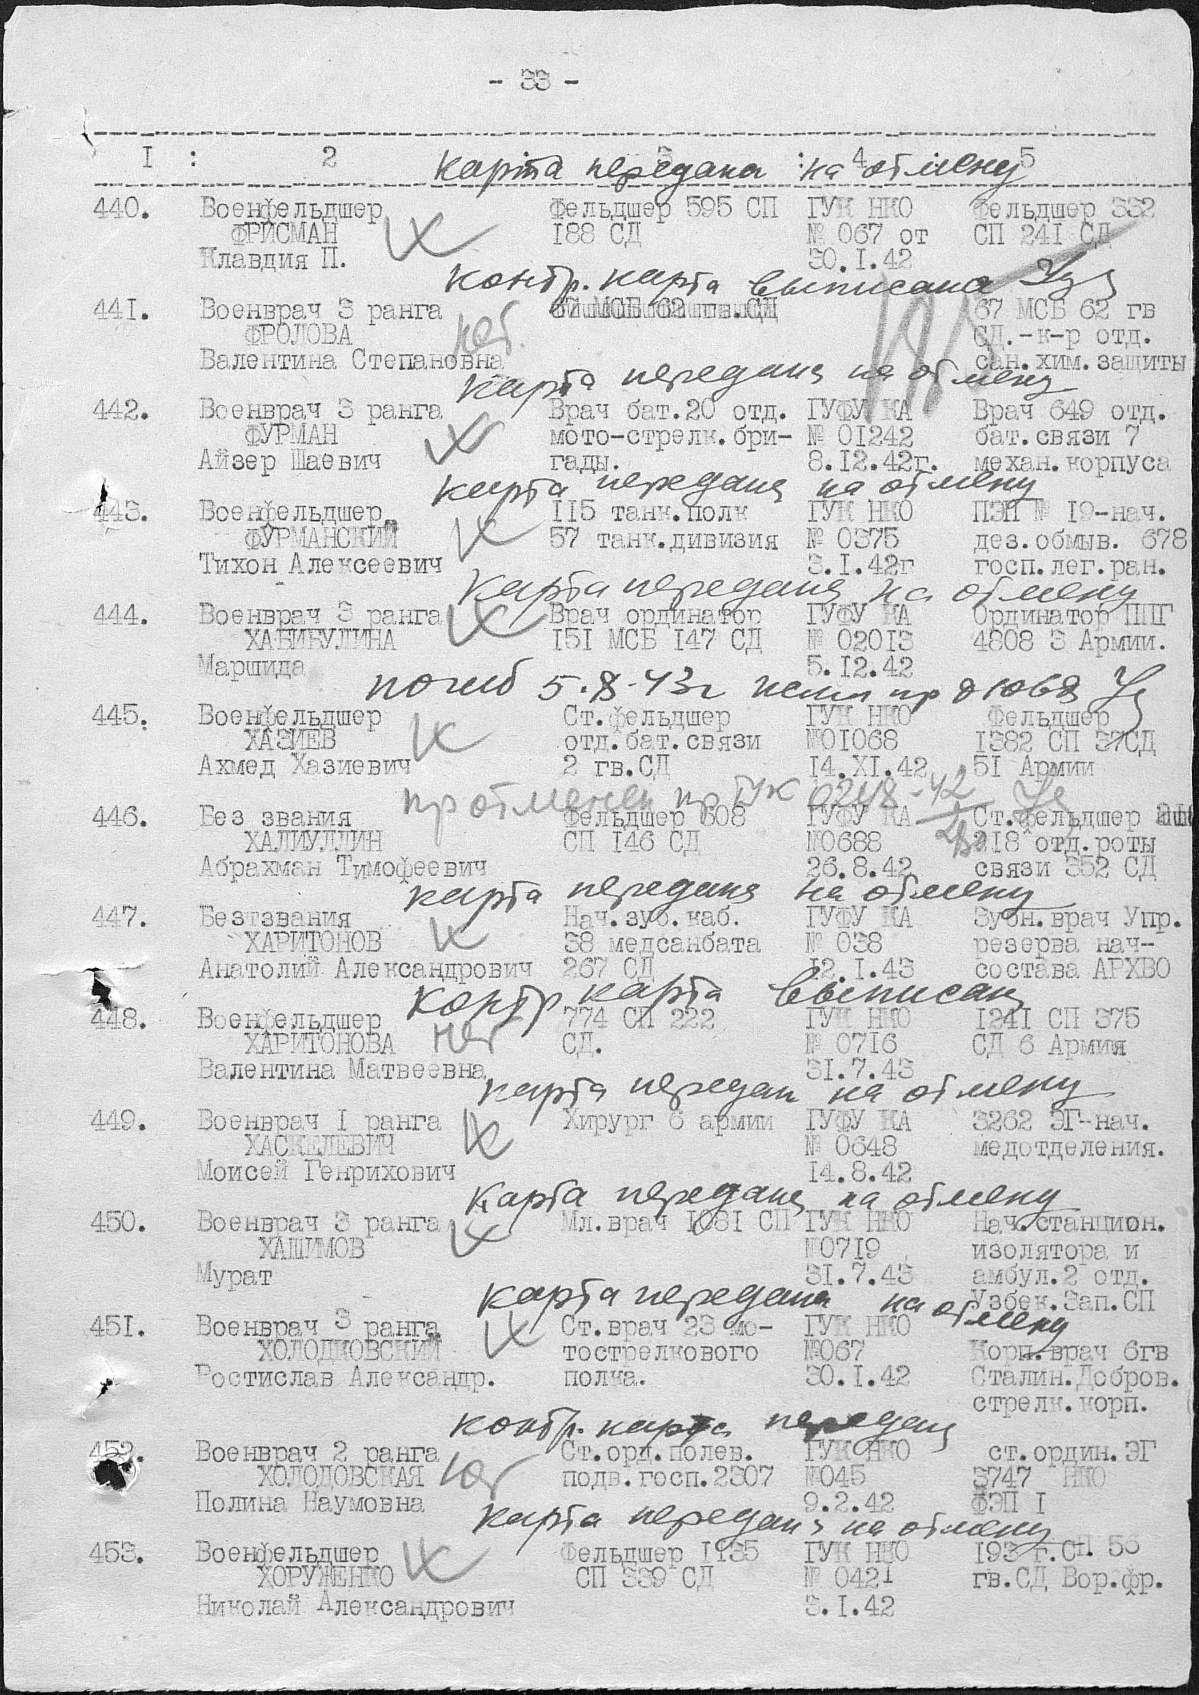 - 33 -
I : 2 3 : 4 : 5
карта передана на отмену
440. Военфельдшер Фельдшер 595 СП ГУК НКО Фельдшер 332
ФРИСМАН 188 СД № 067 от СП 241 СД
Клавдия П. 30.I.42
контр. карта выписана
441. Военврач 3 ранга 67 МСБ 62 гв.СД 67 МСБ 62 гв
ФРОЛОВА нет. СД.-к-р отд.
Валентина Степановна сан.хим.защиты
карта передана на отмену
442. Военврач 3 ранга Врач бат.20 отд. ГУФУ КА Врач 649 отд.
ФУРМАН мото-стрелк.бри- № 01242 бат.связи 7
Айзер Шаевич гады. 8.12.42г. механ.корпуса
карта передана на отмену
443. Военфельдшер 115 танк.полк ГУК НКО ПЭП № 19-нач.
ФУРМАНСКИЙ 57 танк.дивизия № 0375 дез.обмыв. 678
Тихон Алексеевич 3.I.42г госп.лег.ран.
карта передана на отмену
444. Военврач 3 ранга Врач ординатор ГУФУ КА Ординатор ППГ
ХАБИБУЛИНА 151 МСБ 147 СД № 02013 4808 3 Армии.
Маршида 5.12.42
погиб 5.8.43г
445. Военфельдшер Ст.фельдшер ГУК НКО Фельдшер
ХАЗИЕВ отд.бат.связи №01068 1382 СП 87СД
Ахмед Хазиевич 2 гв.СД 14.XI.42 51 Армии
пр отменен пр ГУК 0248-42
446. Без звания Фельдшер 608 ГУФУ КА Ст.фельдшер
ХАЛИУЛЛИН СП 146 СД №0688 218 отд.роты
Абрахман Тимофеевич 26.8.42 связи 352 СД
карта передана на отмену
447. Безтзвания Нач.зуб.каб. ГУФУ КА Зубн.врач Упр.
ХАРИТОНОВ 38 медсанбата № 038 резерва нач-
Анатолий Александрович 267 СД 12.I.43 состава АРХВО
контр. карта выписан
448. Военфельдшер 774 СП 222 ГУК НКО 1241 СП 375
ХАРИТОНОВА нет СД. № 0716 СД 6 Армия
Валентина Матвеевна 31.7.43
карта передан на отмену
449. Военврач I ранга Хирург 6 армии ГУФУ КА 3262 ЭГ-нач.
ХАСКЕЛЕВИЧ № 0648 медотделения.
Моисей Генрихович 14.8.42
Карта передана на отмену
450. Военврач 3 ранга Мл.врач 1081 СП ГУК НКО Нач.станцион.
ХАШИМОВ №0719 изолятора и
Мурат 31.7.43 амбул.2 отд.
Узбек.Зап.СП
карта передана на отмену
451. Военврач 3 ранга Ст.врач 23 мо- ГУК НКО
ХОЛОДКОВСКИЙ тострелкового №067 Корп.врач 6гв
Ростислав Александр. полка. 30.I.42 Сталин.Добров.
стрелк.корп.
контр. карта передана
452. Военврач 2 ранга Ст.орд.полев. ГУК НКО ст.ордин.ЭГ
ХОЛОДОВСКАЯ нет подв.госп.2307 №045 3747 НКО
Полина Наумовна 9.2.42 ФЭП I
карта передана на отмену
453. Военфельдшер Фельдшер 1135 ГУК НКО 193 г.СП 56
ХОРУЖЕНКО СП 339 СД № 0421 гв.СД Вор.фр.
Николай Александрович 3.I.42